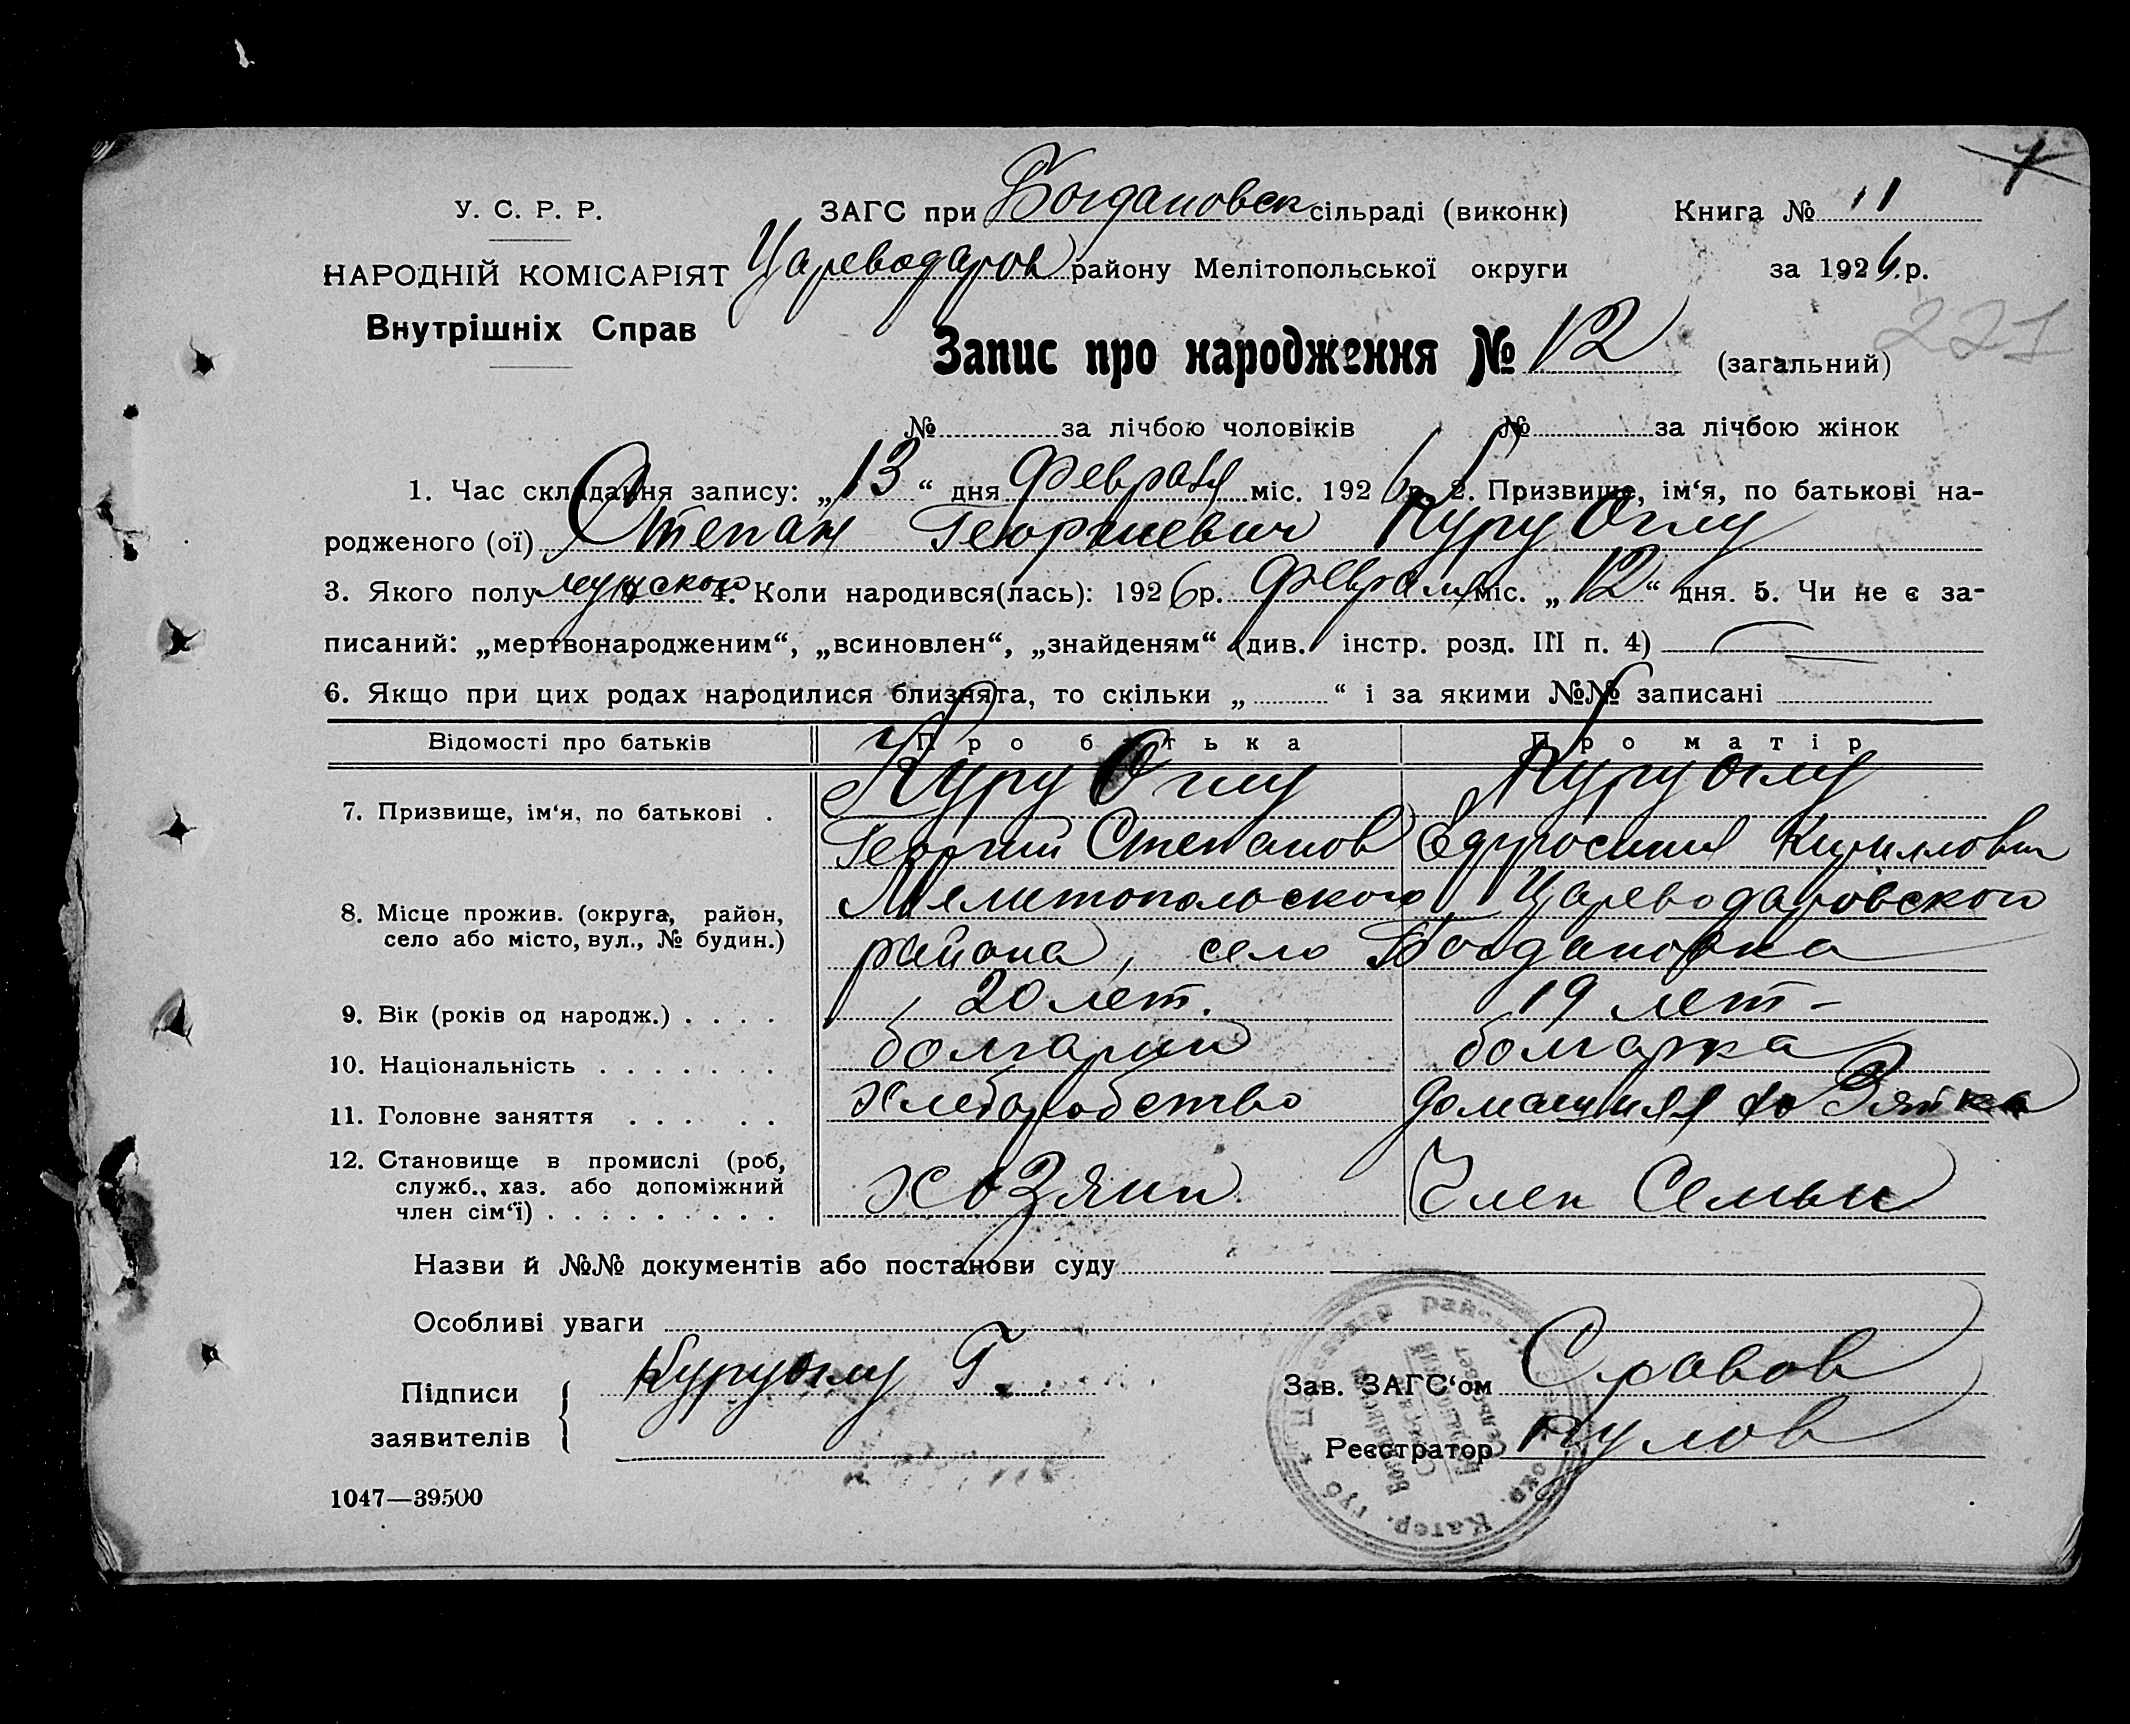 У. С. Р. Р.
НАРОДНІЙ КОМІСАРІЯТ
Внутрішніх Справ
ЗАГС при Богдановск сільраді (виконк)
Цареводаров району Мелітопольської округи
Книга № 11
за 1926 р.
Запис про народження № 12 (загальний)
221
№ за лічбою чоловіків № за лічбою жінок
1. Час складання запису: „13“ дня Февраля міс. 1926 р. 2. Призвище, ім‘я, по батькові на-
родженого (ої) Степан Георгиевич Куру Оглу
3. Якого полу мужского 4. Коли народився(лась): 1926 р. Февраля міс. „12“ дня. 5. Чи не є за-
писаний: „мертвонародженим“, „всиновлен“, „знайденям“ (див. інстр. розд. III п. 4)
6. Якщо при цих родах народилися близнята, то скільки „ “ і за якими №№ записані
Відомості про батьків Про батька Про матір
7. Призвище, ім‘я, по батькові . Куру Оглу Куру Оглу
Георгий Степанов Кирилловн
8. Місце прожив. (округа, район, Мелитопольского Цареводаровского
село або місто, вул., № будин.) района, село Богдановка
9. Вік (років од народж.) . . . . 20 лет. 19 лет
10. Національність . . . . . . . болгарин болгарка
11. Головне заняття . . . . . хлеборобство домашняя
12. Становище в промислі (роб,
служб., хаз. або допоміжний хозяин Член Семьи
член сім‘ї) . . . . . . . . .
Назви й №№ документів або постанови суду
Особливі уваги
Підписи
заявителів
Куруоглу Г.
Зав. ЗАГС‘ом
Реєстратор Кулов
1047—39500